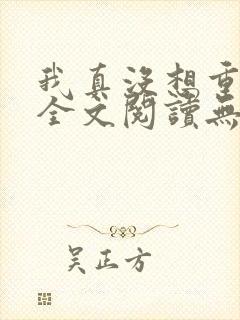 我真没想重
全文閱讀無
吴正方